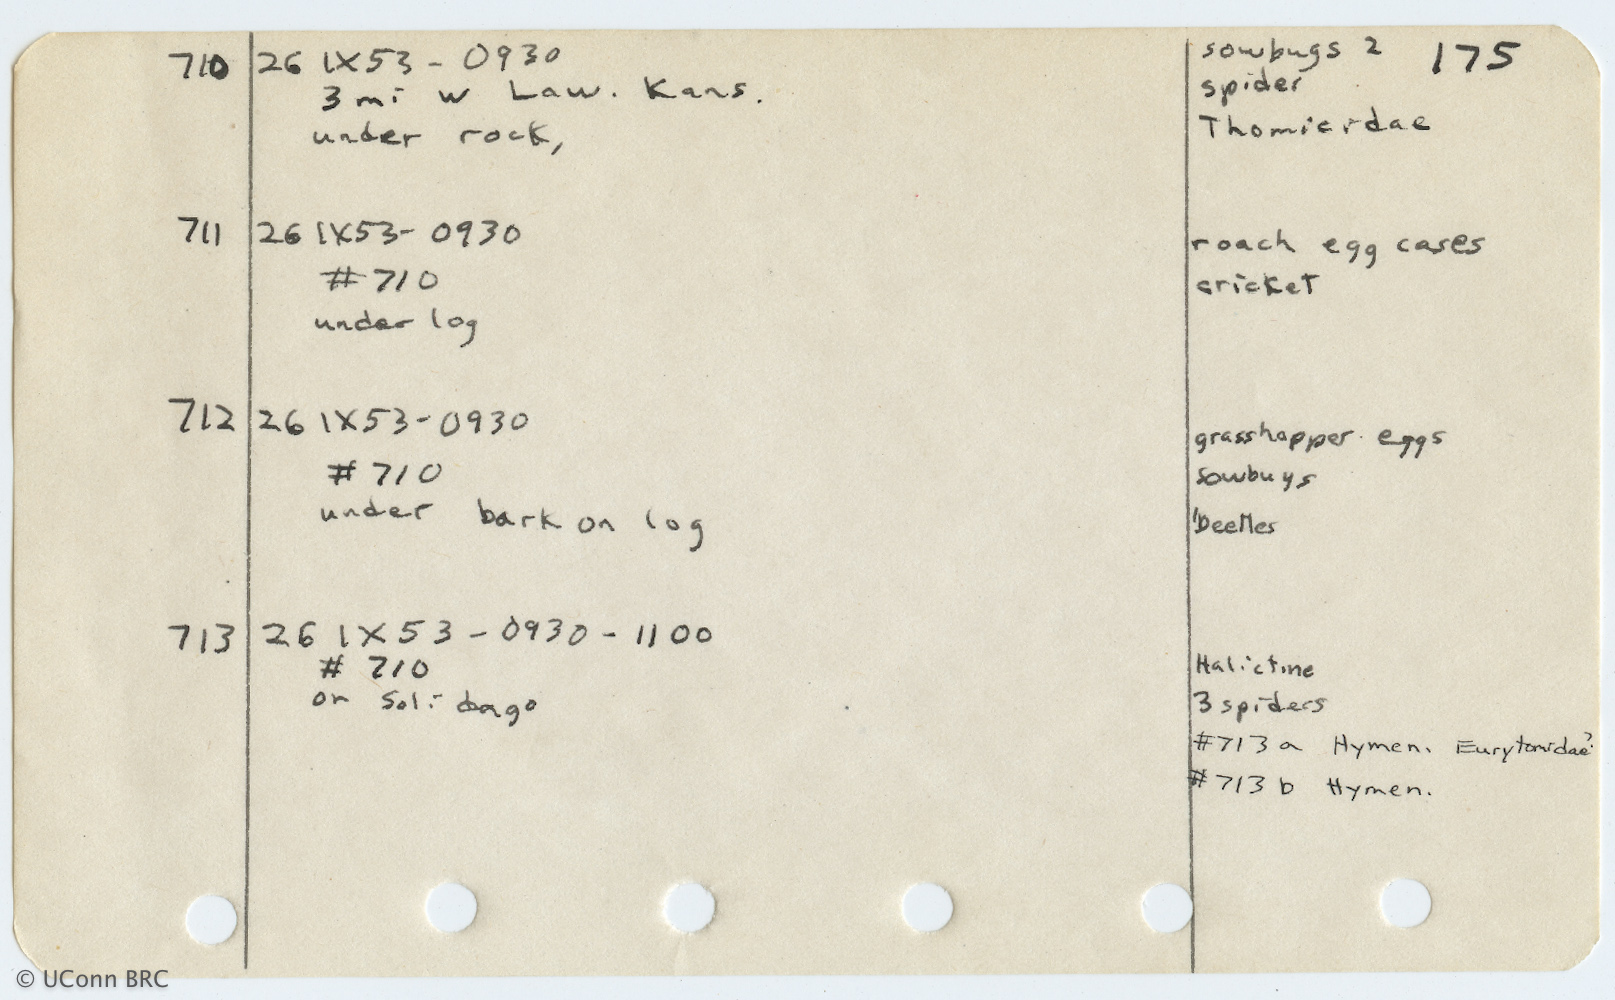 710 26 IX53 - 0930
3 mi W Law. Kans.
under rock,
sowbugs 2
175
spider
Thomicidae
711 26 IX53- 0930
# 710
under log
roach egg cases
cricket
712 26 IX53-0930
# 710
under bark on log
grasshopper eggs
sowbugs
beetles
713 26 IX53 - 0930 - 1100
# 710
on Solidago
Halictine
3 spiders
#713 a Hymen. Eurytomidae?
#713 b Hymen.
© UConn BRC